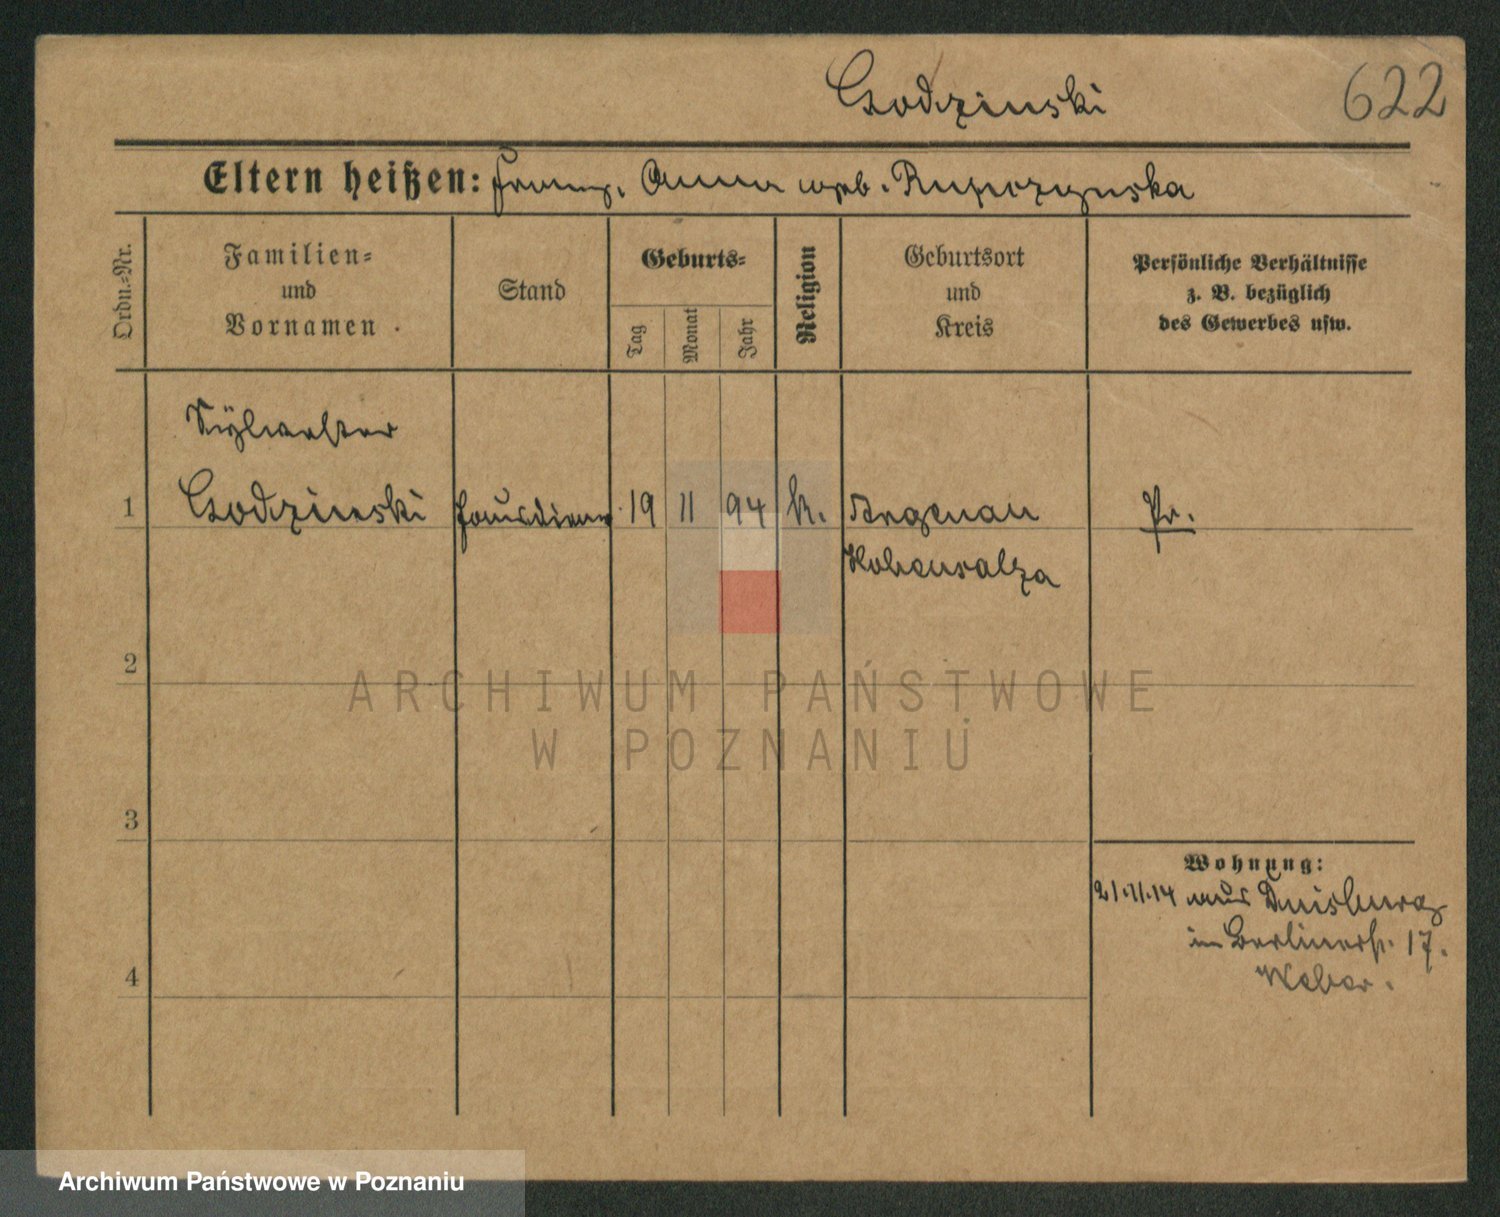 Godzinski 622
Eltern heißen: Franz, Anna geb. Rupczynska
Ordn.-Nr.
Familien-
und
Vornamen
Stand
Geburts-
Tag
Monat
Jahr
Religion
Geburtsort
und
Kreis
Persönliche Verhältnisse
z. B. bezüglich
des Gewerbes usw.
Sÿlwester
1 Godzinski Hausdiener 19 11 94 k. Argenau Pr.
Hohensalza
2
3
4
Wohnung:
21.11.14 aus Duisburg
in Berlinerstr. 17.
Weber.
ARCHIWUM PAŃSTWOWE
W POZNANIU
Archiwum Państwowe w Poznaniu